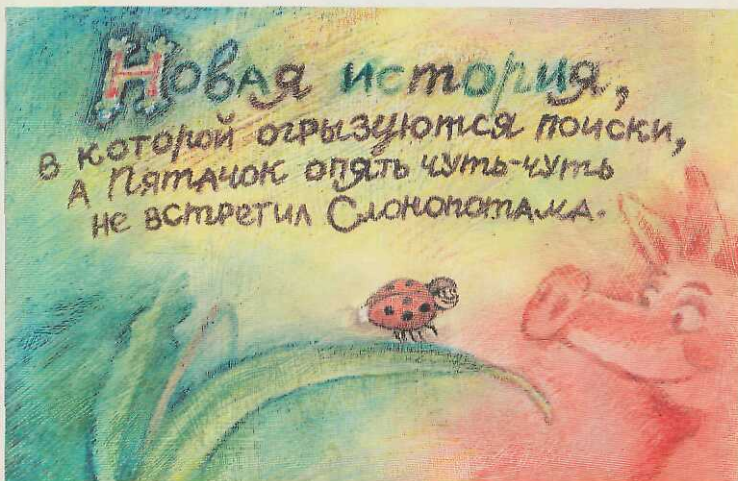 Новая история,
в которой огрызуются поиски,
А Пятачок опять чуть-чуть
не встретил Слонопотама.